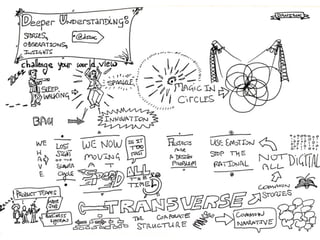 DEEPER UNDERSTANDING:
STORIES,
OBSERVATIONS,
INSIGHTS
challenge your world view
SLEEP
WALKING
SPARKLE
MAGIC IN
CIRCLES
BAU
INNOVATION
WE
HAVE
LOST
SIGHT
SLOWER
CYCLE
WE NOW
MOVING
A T
SPEED
IS IT
TOO
FAST
ALL
THE
TIME
PRODUCTS
ARE
A DESIGN
PROBLEM
USE EMOTION
STOP THE
RATIONAL
NOT DIGITAL
ALL
COMMON
STORIES
PROJECT TEAMS
BUSINESS
TRANSVERSE
THE CORPORATE
STRUCTURE
COMMON
NARRATIVE